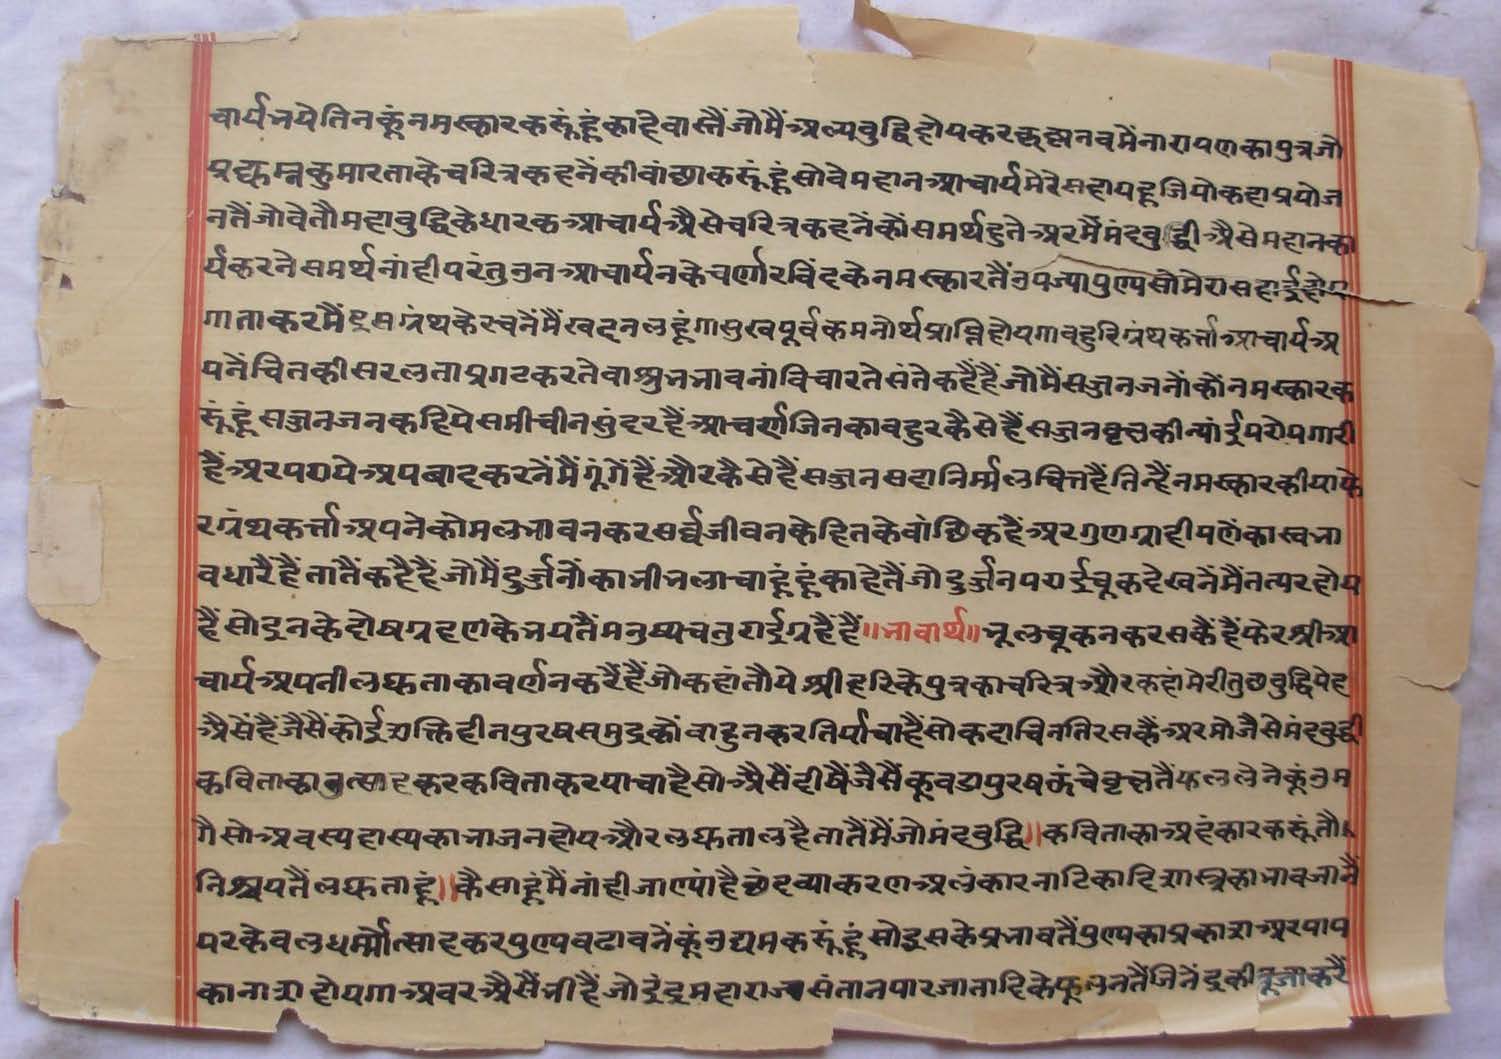 चार्यभयेतिनकूंनमस्कारकरूंहूंकाहेवास्तैंजोमैंअल्पबुद्धिहोयकरकृष्णनवमेंनारायणकापुत्रजो
प्रद्युम्नकुमारताकेचरित्रकहनेंकीवांछाकरूंहूंसोवेमहानआचार्यमेरेसहायहूजियोकहाप्रयोज
नतैंजोवेतौमहाबुद्धिकेधारकआचार्यऔसेचरित्रकहनेंकोंसमर्थहुतेअरमैंमंदबुद्धीऔसेमहानका
र्यकरनेसमर्थनांहीपरंतुउनआचार्यनकेचर्णारविंदकेनमस्कारतैंउपज्यापुण्यसोमेरासहाईहोय
गाताकरमैंइसग्रंथकेरचनेंमैंखेदनलहूंगासुखपूर्वकमनोर्थप्राप्तिहोयगाबहुरिग्रंथकर्त्ताआचार्यअ
पनेंचितकीसरलताप्रगटकरतेवाशुभभावनांविचारतेसंतेकहैंहैंजोमैंसज्जनजनोंकोंनमस्कारक
रूंहूंसज्जनजनकहियेसमीचीनसुंदरहैंआचर्णजिनकाबहुरकैसेहैंसज्जनवृक्षकीन्यांईपरोपगारी
हैंअरपरायेअपवादकरनेंमैंगूंगेंहैंऔरकैसेहैंसज्जनसदानिर्म्मलचित्तहैंतिन्हैंनमस्कारकीयाफे
रग्रंथकर्त्ताअपनेकोमलभावनकरसर्व्वजीवनकेहितकेवांछिकहैंअरगुणग्राहीपणेंकास्वभा
वधारैंहैंतातैंकहैहैंजोमैंदुर्ज्जनोंकाभीभलाचाहूंहूंकाहेतैंजोदुर्ज्जनपराईचूकदेखनेंमैंतत्परहोय
हैंसोइनकेदोषग्रहणकेभयतैंमनुष्यचतुराईग्रहैंहैं॥भावार्थ॥भूलचूकनकरसकैंहैंफेरश्रीआ
चार्यअपनीलघुताकावर्णनकरैंहैंजोकहांतौयेश्रीहरिकेपुत्रकाचरित्रऔरकहांमेरीतुछबुद्धियेह
औसेंहैजैसैंकोईशक्तिहीनपुरषसमुद्रकोंबाहुनकरतिर्याचाहैसोकदाचिनतिरसकैंअरमोजैसेमंदबुद्धी
कविताकाउत्साहकरकविताकरयाचाहैसोऔसैंहीहैंजैसैंकूबडापुरषऊंचेवृक्षतैंफललेनेकूंउम
गैसोअवस्यहास्यकाभाजनहोयऔरलघुतालहैतातैंमैंजोमंदबुद्धि॥कविताकाअहंकारकरूंतौ
निश्चयतैंलघुताहूं॥कैसाहूंमैंनांहीजाण्यांहैछंदव्याकरणअलंकारनाटिकादिशास्त्रकाभावजानैं
परकेवलधर्म्मोत्साहकरपुण्यबढावनेंकूंउद्यमकरूंहूंसोइसकेप्रभावतैंपुण्यकाप्रकाशअरपाप
कानाशहोयगाअवरऔसैंभीहैंजोइंद्रमहाराजसंतानपारजातादिकेफूलनतैंजिनेंद्रकीपूजाकरैं